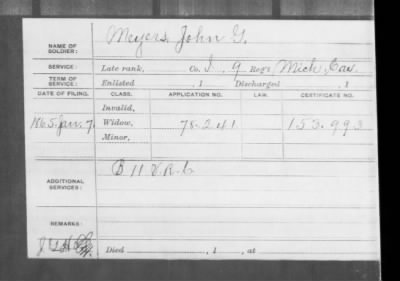 NAME OF SOLDIER: Meyers, John G.
SERVICE: Late rank, Co. I, 9 Reg't Mich. Cav.
TERM OF SERVICE: Enlisted , 1 Discharged , 1
DATE OF FILING. CLASS. APPLICATION NO. LAW. CERTIFICATE NO.
Invalid,
1865 Jan. 7. Widow, 78.241 153.993
Minor,
ADDITIONAL SERVICES: B 11 V.R.C
REMARKS:
Died , 1 , at